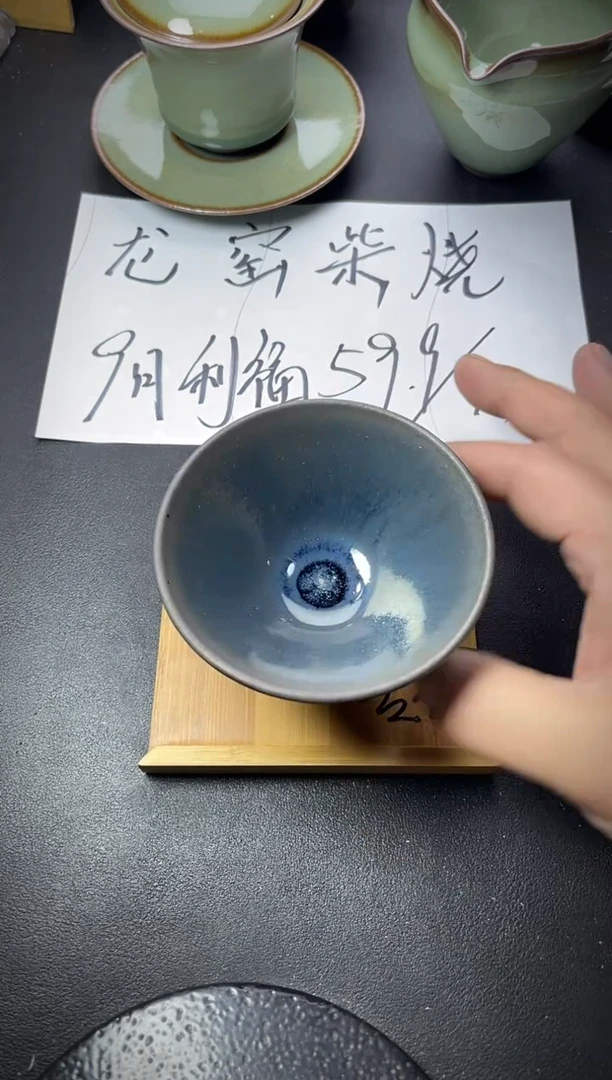 龙窑柴烧
9月利福59.9/